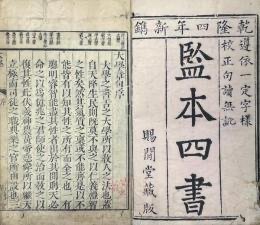 乾隆四年新鐫
遵依一定字樣
校正句讀無訛
監本四書
賜閒堂藏版
大學章句序
大學之書古之大學所以教人之法也蓋
自天降生民則既莫不與之以仁義禮智
之性矣然其氣質之稟或不能齊是以不
能皆有以知其性之所有而全之也一有
聰明睿智能盡其性者出於其間則天必
命之以為億兆之君師使之治而教之以
復其性此伏羲神農黃帝堯舜所以繼天
立極而司徒之職典樂之官所由設也三